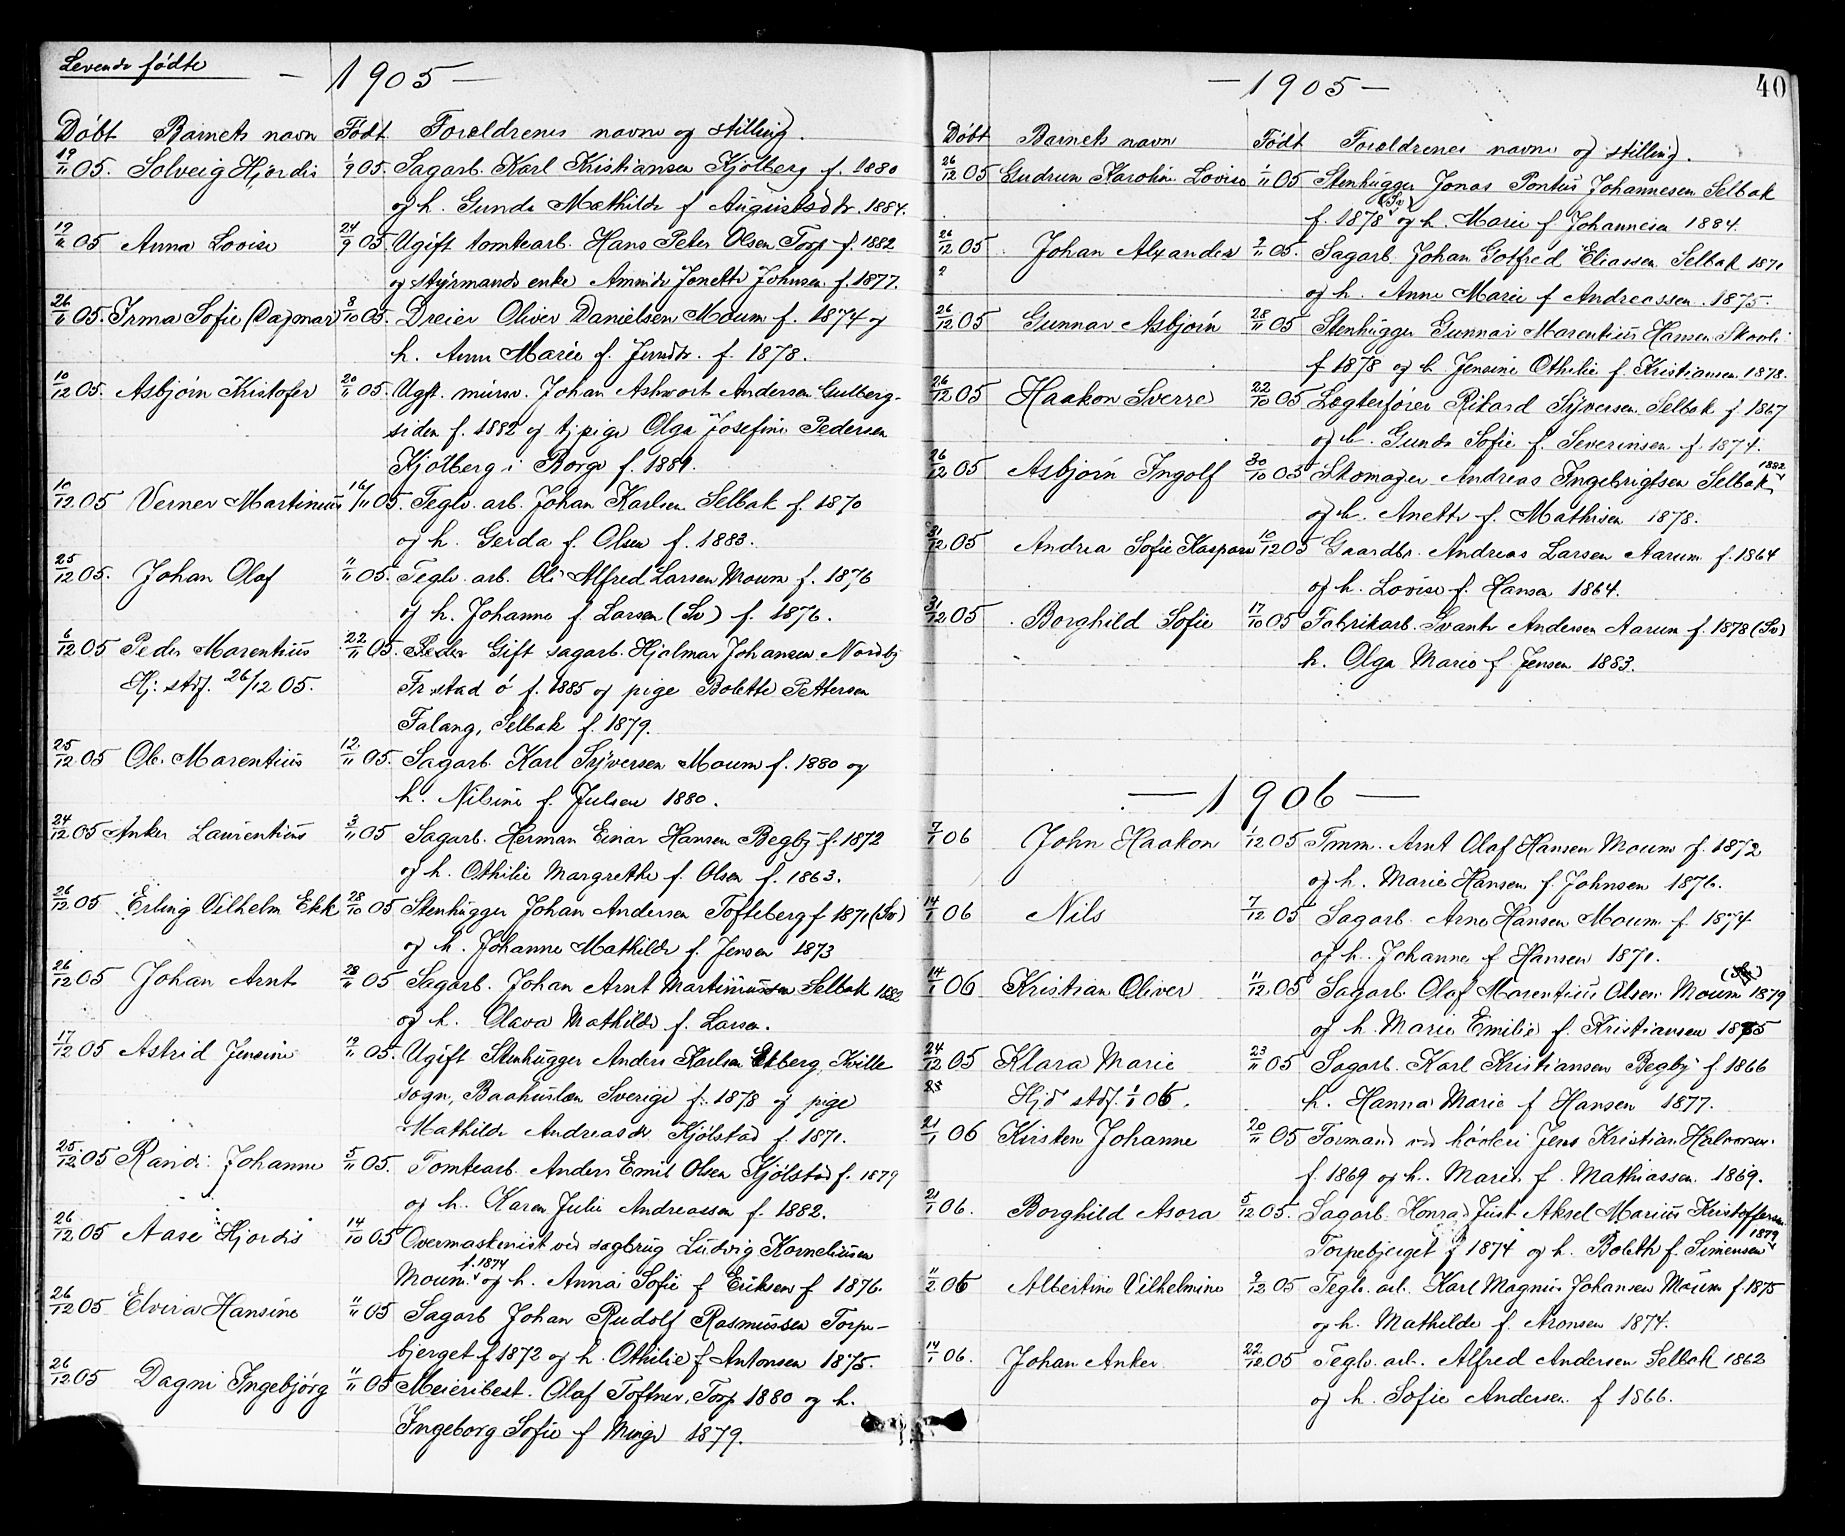 Levende fødte
— 1905 —
Døbt Barnets navn Født Forældrenes navne og stilling.
19/11 05. Solveig Hjørdis 1/9 05. Sagarb. Karl Kristiansen Kjølberg f. 1880
og h. Gunda Mathilde f Augustsdtr. 1884.
19/11 05 Anna Lovise 24/9 05. Ugift tomtearb. Hans Peter Olsen Torp f. 1882
og styrmands enke Aminde Jonette Johnsen f. 1877.
26/11 05. Irma Sofie (Dagmar) 8/10 05. Dreier Oliver Danielsen Moum f. 1874 og
h. Anne Marie f. f. 1878.
10/12 05. Asbjørn Kristofer 20/11 05. Ugft. murer. Johan Ashwort Andersen Gulberg-
siden f. 1882 og tj.pige Olga Josefine Pedersen
Kjølberg i Borge f. 1881.
10/12 05 Verner Martinius 16/11 05. Teglv. arb. Johan Karlsen Selbak f. 1870
og h. Gerda f. Olsen f. 1883.
25/12 05. Johan Olaf 11/11 05. Teglv. arb. Ole Alfred Larsen Moum f. 1876
og h. Johanne f Larsen (Sv) f. 1876.
6/12 05 Peder Marentius 22/11 05. Gift sagarb. Hjalmar Johansen Nordby
Hj: stdf. 26/12 05. Frstad ø f. 1885 og pige Bolette Pettersen
Falang, Selbak f. 1879.
25/12 05 Ole Marentius 12/11 05. Sagarb. Karl Syversen Moum f. 1880 og
h. Nilsine f. Julsen 1880.
24/12 05 Anker Laurentius 3/11 05 Sagarb. Herman Einar Hansen Begby f. 1872
og h. Othilie Margrethe f. Olsen f. 1863.
26/12 05 Erling Vilhelm Ekk 28/10 05 Stenhugger Johan Andersen Tofteberg f 1871 (Sv)
og h. Johanne Mathilde f. Jensen 1873
26/12 05 Johan Arnt 23/11 05 Sagarb. Johan Arnt Martiniussen Selbak 1882
og h. Olava Mathilde f. Larsen.
17/12 05 Astrid Jensine 19/11 05. Ugift Stenhugger Anders Karlsen Ekberg, Kville
sogn, Baahuslen Sverige f. 1878 og pige
Mathilde Andreasdtr. Kjølstad f. 1871.
25/12 05 Randi Johanne 5/11 05. Tomtearb. Anders Emil Olsen Kjølstad f. 1879
og h. Karen Julie Andreassen f. 1882.
26/12 05 Aase Hjordis 14/10 05 Overmaskenist ved sagbrug Ludvig Korneliusen
Moum f. 1874 og h. Anna Sofie f Eriksen f 1876.
26/12 05 Elvira Hansine 11/11 05 Sagarb Johan Rudolf Rasmussen Torpe-
bjerget f 1872 og h. Othilie f Antonsen 1875.
26/12 05 Dagni Ingebjørg 11/11 05 Meieribest. Olaf Toftner, Torp 1880 og h.
Ingeborg Sofie f Minge 1879.
— 1905 — 40
Døbt Barnets navn Født Forældrenes navne og stilling.
26/12 05 Gudrun Karoline Lovise 1/11 05 Stenhugger Jonas Pontus Johannesen Selbak
f. 1878 (Sv) og h. Marie f Johannesen 1884.
26/12 05 Johan Alexander 2/11 05. Sagarb. Johan Gotfred Eliassen Selbak 1871
og h. Anne Marie f Andreassen 1875.
26/12 05 Gunnar Asbjørn 28/11 05 Stenhugger Gunnar Marentius Hansen Skovli
f 1878 og h Jensine Othilie f. Kristiansen 1878.
26/12 05 Haakon Sverre 22/10 05 Lægterfører Rikard Syversen Selbak f 1867
og h. Gunda Sofie f. Severinsen f. 1874.
26/12 05 Asbjørn Ingolf 30/10 05 Skomager Andreas Ingebrigtsen Selbak 1882
og h. Anette f. Mathisen 1878.
31/12 05 Andrea Sofie Kaspara 10/12 05 Gaardbr. Andreas Larsen Aarum f. 1864
og h. Lovise f. Hansen 1864.
31/12 05 Borghild Sofie 17/10 05 Fabrikarb. Svante Andersen Aarum f. 1878 (Sv)
h. Olga Marie f Jensen 1883.
— 1906 —
7/1 06 John Haakon 1/12 05 Tmm. Arnt Olaf Hansen Moum f. 1872
og h. Marie Hansen f Johnsen 1876.
14/1 06 Nils 7/12 05 Sagarb. Arne Hansen Moum f. 1874
og h. Johanne f Hansen 1871.
14/1 06 Kristian Oliver 11/12 05 Sagarb. Olaf Marentius Olsen Moum 1879
og h. Marie Emilie f. Kristiansen 1875
24/12 05 Klara Marie 23/11 05 Sagarb. Karl Kristiansen Begby f 1866
Hjd stdf. 1/1 06. h. Hanna Marie f Hansen 1877.
21/1 06 Kirsten Johanne 20/11 05 Formand ved høvleri Jens Kristian Halvorsen.
f. 1869 og h. Marie f. Mathiassen 1869.
21/1 06. Borghild Asora 5/12 05. Sagarb. Konrad Just Aksel Marius Kristoffersen
Torpebjerget f 1874 og h. Boleth f. Simensen 1879
11/2 06 Albertine Vilhelmine 9/12 05 Teglv. arb. Karl Magnus Johansen Moum f. 1875
og h. Mathilde f. Aronsen 1874.
14/1 06. Johan Anker 22/12 05 Teglv. arb. Alfred Andersen Selbak 1862
og h. Sofie Andersen f 1866.